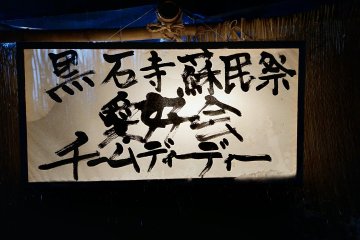 黒石寺蘇民祭
愛好会
チームディーディー